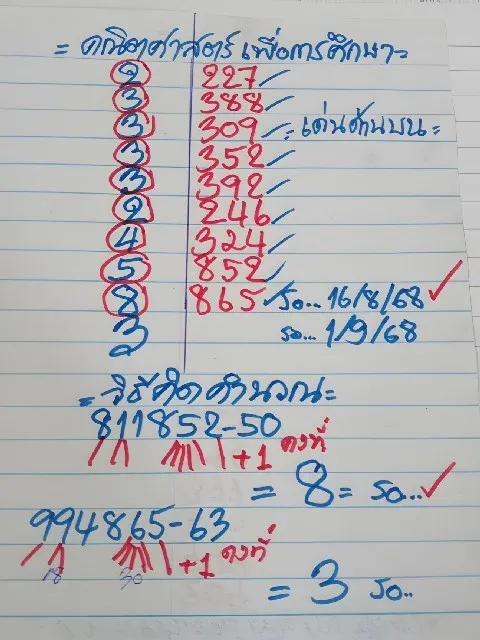 = คณิตศาสตร์ เพื่อการศึกษา=
2 227
3 388
3 309 = เด่นด้านบน =
3 352
3 392
2 246
4 324
5 852
8 865 รอ... 16/8/68
3 รอ... 1/9/68
= วิธีคิดคำนวณ=
811852-50
+1 คงที่
= 8 = รอ...
994865-63
18 30 +1 คงที่
= 3 รอ..